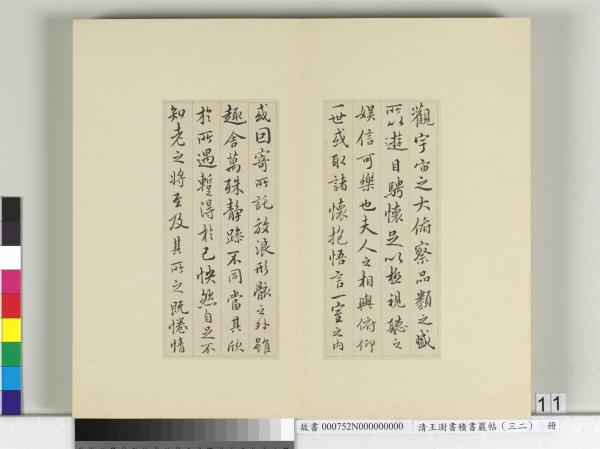 觀宇宙之大俯察品類之盛
所以遊目騁懷足以極視聽之
娛信可樂也夫人之相與俯仰
一世或取諸懷抱悟言一室之內
或因寄所託放浪形骸之外雖
趣舍萬殊靜躁不同當其欣
於所遇暫得於己怏然自足不
知老之將至及其所之既惓情
11
故書 000752N000000000 清王澍書積書巖帖（三二） 冊